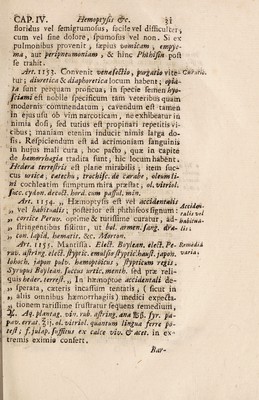 CAP. IV. Hemoptysis &c. 31
floridus vel semigrumosus, facile vel difficulter,
cum vel sine dolore, spumosus vel non. Si ex
pulmonibus provenit, sæpius vomicam, empye-
ma, aut peripneumoniam, & hinc Phthisin post
se trahit.
Art. 1153. Convenit venæsectio, purgatio vite-
tur; diuretica & diaphoretica locum habent; opia-
ta sunt perquam proficua, in specie semen hyo-
sciami est nobile specificum tam veteribus quam
modernis commendatum; cavendum est tamen
in ejus usu ob vim narcoticam, ne exhibeatur in
nimia dosi, sed turius est propinari repetitis vi-
cibus; maniam etenim inducit nimis larga do-
sis. Respiciendum est ad acrimoniam sanguinis
in hujus mali cura, hoc pacto, quæ in capite
de hæmorrhagia tradita sunt, hic locum habent.
Hedera terrestris est plane mirabilis; item suc-
cus urticæ, catechu, trochisc. de carabe, oleum li-
ni cochleatim sumptum mira præstat; ol. vitriol.
succ. cydon. decoct. hord. cum passul. min.
Curatio.
Art. 1154. „ Hæmoptysis est vel accidentalis
„ vel habitualis; posterior est phthiseos signum:
„ cortice Peruv. optime & tutissime curatur, ad-
„ stringentibus sistitur, ut bol. armen. sang. dra-
„ con. lapid. hæmatit. &c. Morton.
Acciden-
ralis vel
habitua-
lis.
Art. 1155. Mantissa. Elect. Boylean. elect. Pe-
ruv. astring. elect. styptic. emulsio styptic. haust. japon.
lohoch. japon pulv. hæmoptoicus, stypticum regis.
Syrupus Boylean. succus urtic. menth. sed præ reli-
quis heder. terrest. „ In hæmoptoe accidentali de-
„ sperata, cæteris incassum tentatis, (sicut in
„ aliis omnibus hæmorrhagiis) medici expecta-
„ tionem rarissime frustratur sequens remedium,
Remedia
varia.
„ ℞. Aq. plantag. vin. rub. astring. ana ℔ß. syr. pa-
pav. errat. ℥ij. ol. vitriol. quantum lingua ferre po-
test; f. julap. suffitus ex calce viv. & acet. in ex-
tremis eximio confert.
Bar-